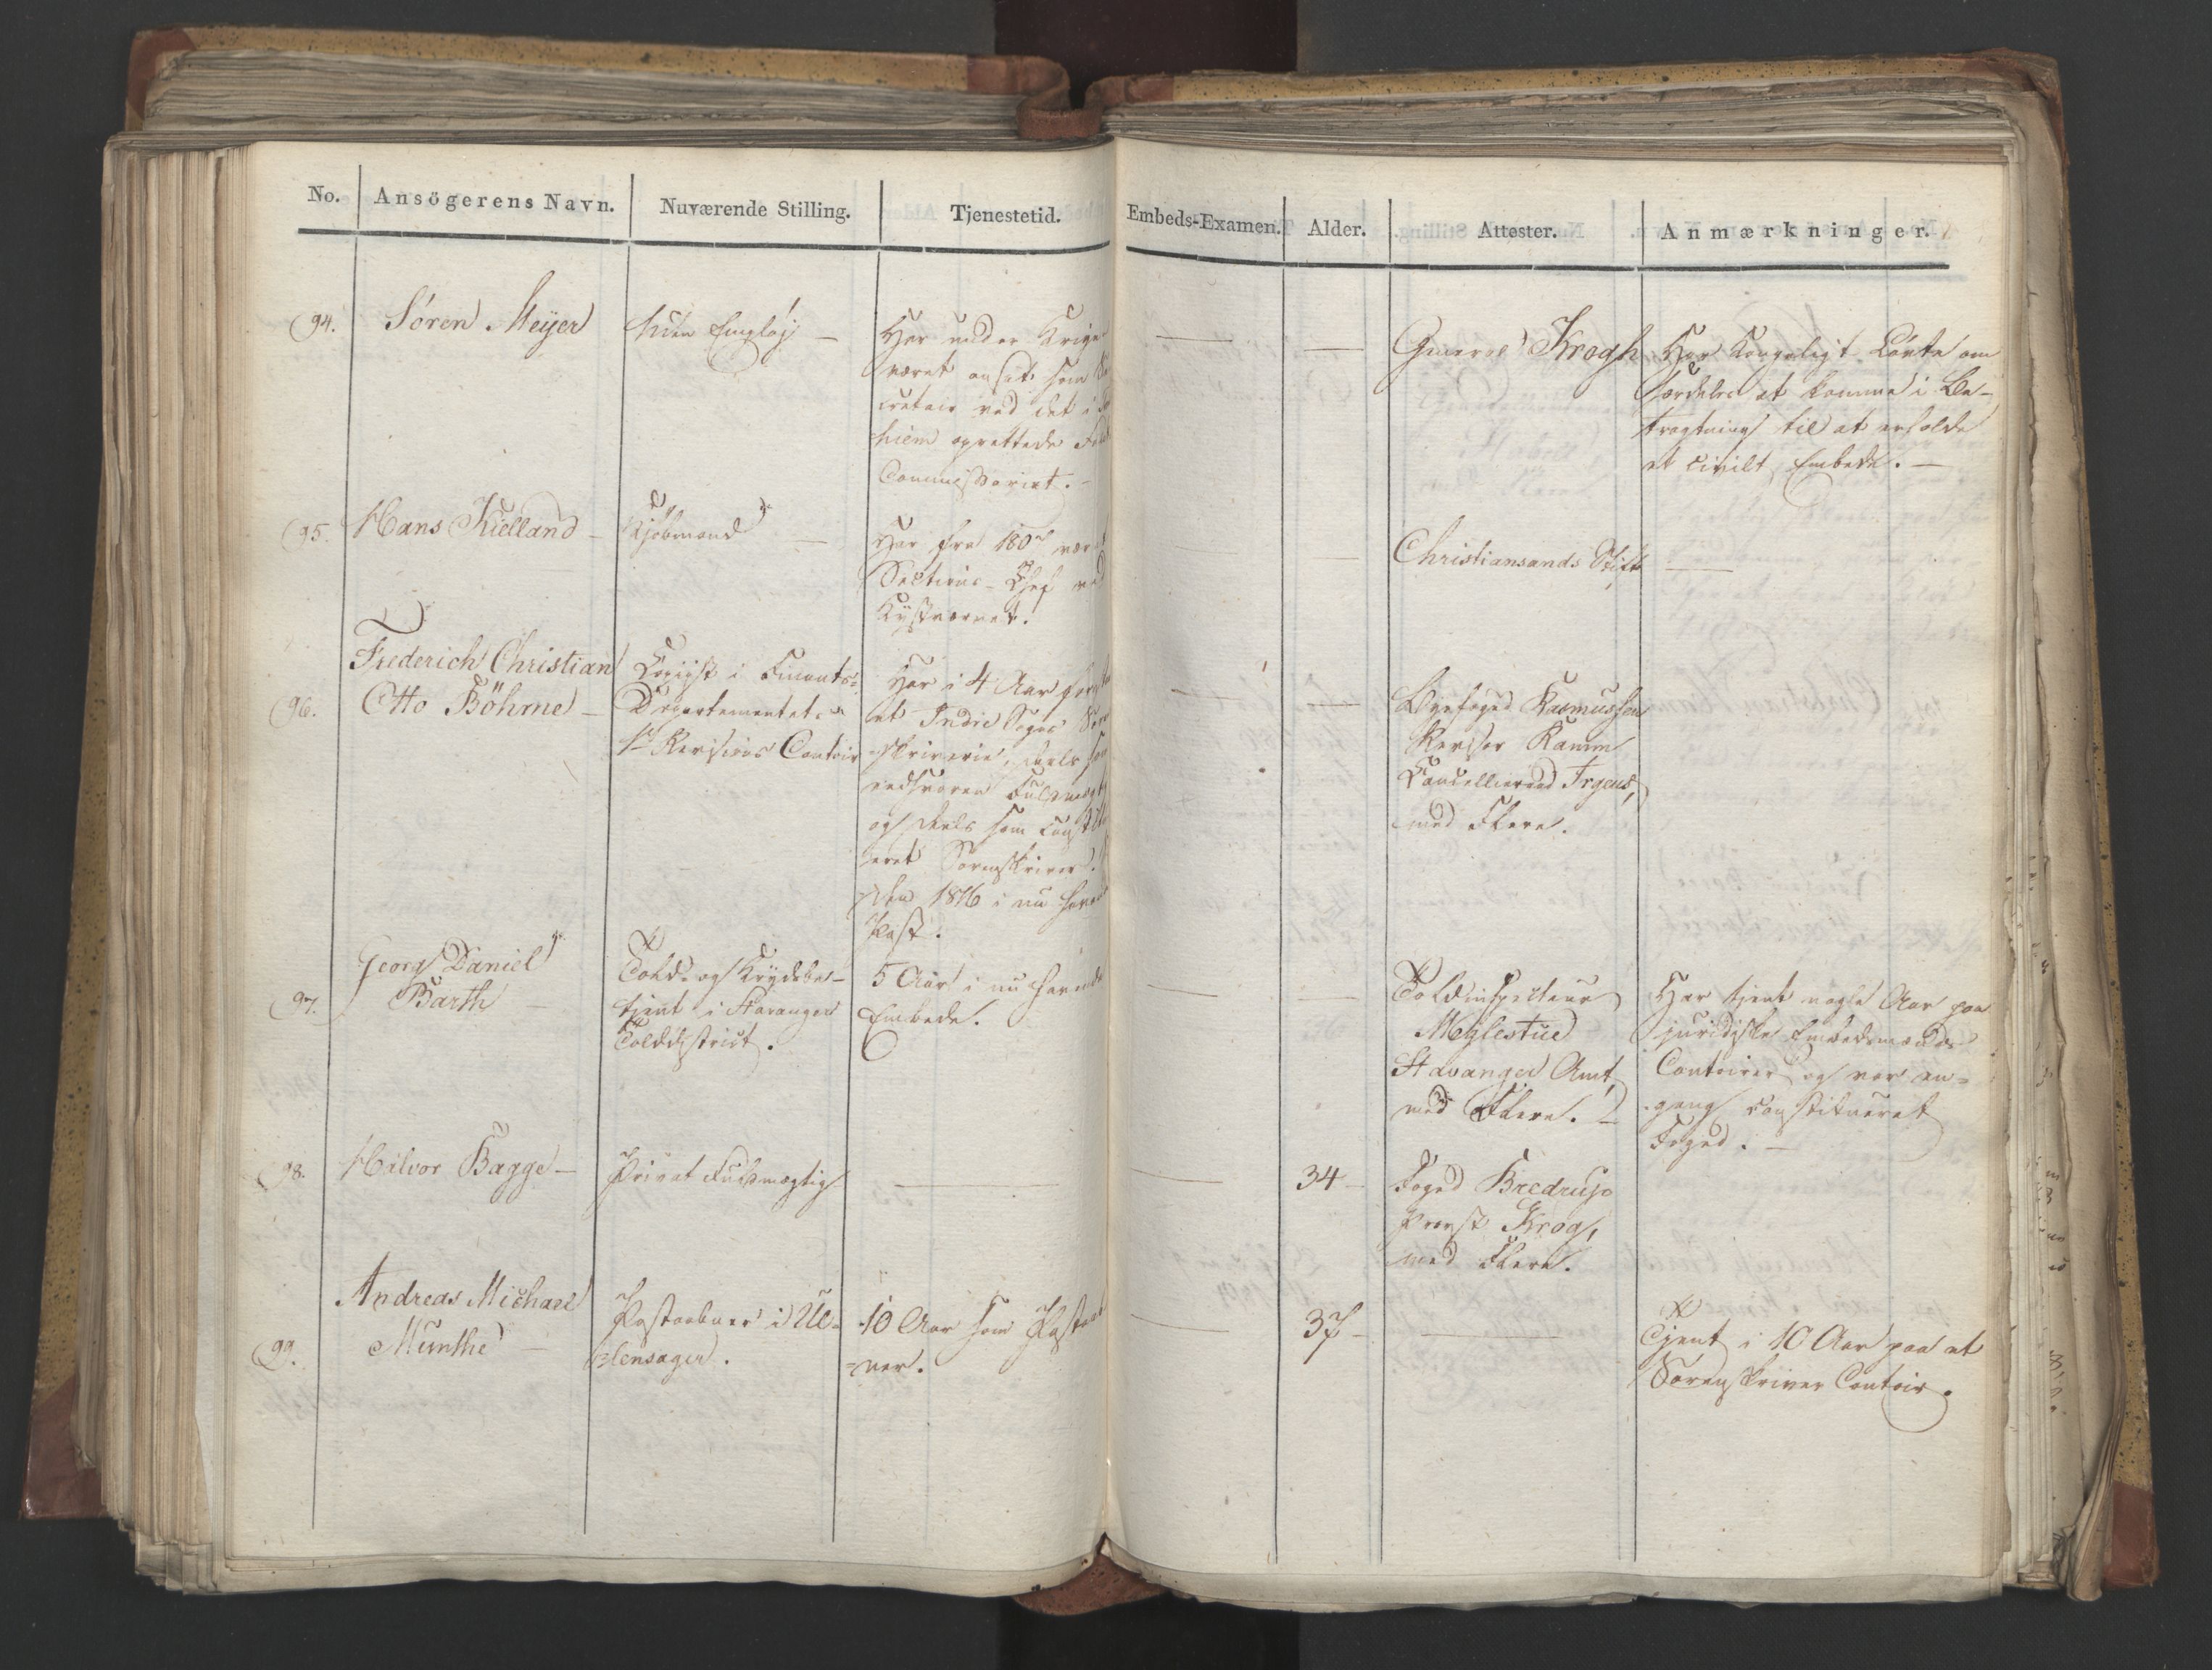 No. Ansögerens Navn. Nuværende Stilling. Tjenestetid. Embeds-Examen. Alder. Attester. Anmærkninger.
94. Sören Meyer
Uden Employ —
Har under Krigen
været ansat som Se
cretair ved det i
hiem oprettede Felt
Commissariat. -
—
—
General Krogh
Har Kongeligt Løvte om
særdeles at komme i Be-
tragtning til at erholde
et civilt Embede. —
95. Hans Kielland —
Kjøbmand —
Har fra 180 været
Sections-Chef ved
Kystværnet.
—
—
Christiansands Stift
—
96.
Frederich Christian
Otto Böhme —
Copiist i Finants-
Departementets
1ste Revisions Contoir
Har i 4 Aar
et Indre Sogns Sorn
-skriverie, deels som
edsvoren Fuldmægtig
og deels som constitu
eret Sorenskriver.
den 1816 i nu havende
Post.
—
—
Byefoged Rasmussen
Revisor Ramm
Cancellieraad Irgens,
med Flere.
97.
Georg Daniel
Barth —
Told- og Krydsbe-
tjent i Stavanger
Tolddistrict.
5 Aar i nu havende
Embede.
—
—
Toldinspecteur
Meylestue
Stavanger Amt,
med Flere. —
Har tjent nogle Aar paa
juridiske Embedsmænds
Contoirer og var en-
gang constitueret
Foged. —
98. Halvor Bagge —
Privat Fuldmægtig
—
—
34 -
Foged Bredrup
Provst Krog,
med Flere.
99.
Andreas Michael
Munthe —
Postaabner i Ul-
lensager.
10 Aar som Postaab
-ner.
—
37 -
—
Tjent i 10 Aar paa et
Sorenskriver Contoir.